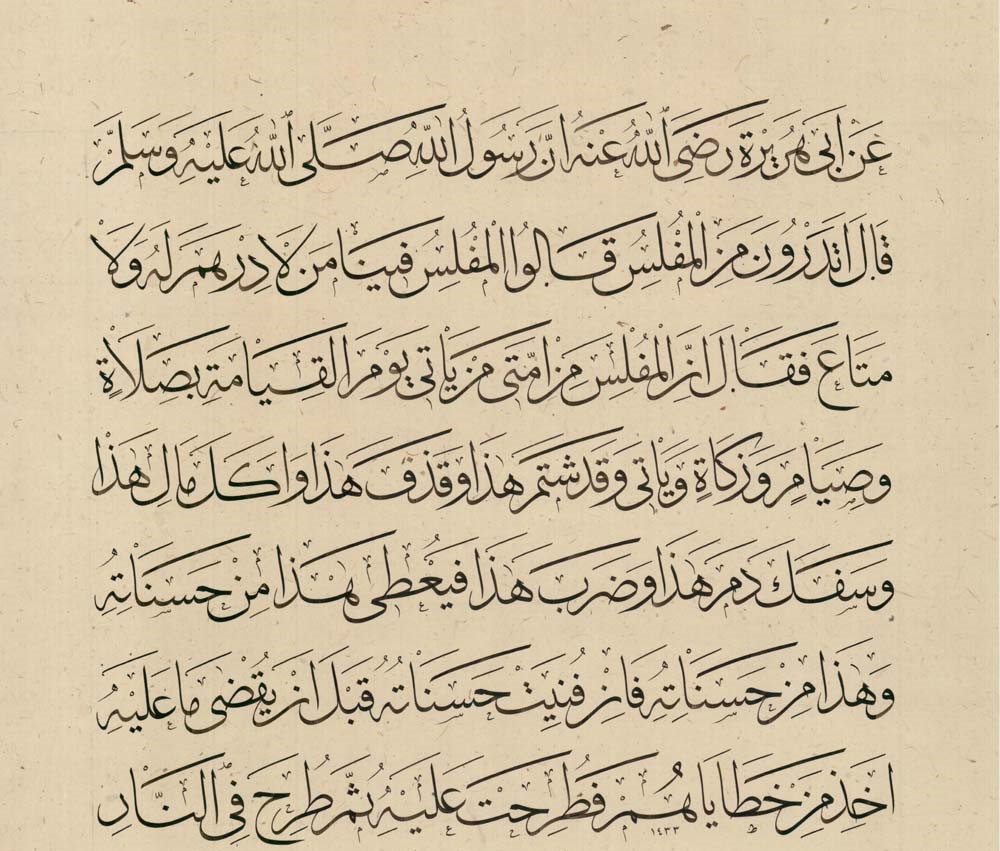 عَنْ اَبِى هُرَيْرَةَ رَضِىَ اللّٰهُ عَنْهُ اَنَّ رَسُولَ اللّٰهِ صَلَّى اللّٰهُ عَلَيْهِ وَسَلَّمَ
قَالَ اَتَدْرُونَ مَنِ الْمُفْلِسُ قَالُوا الْمُفْلِسُ فِينَا مَنْ لَا دِرْهَمَ لَهُ وَلَا
مَتَاعَ فَقَالَ اِنَّ الْمُفْلِسَ مِنْ اُمَّتِى مَنْ يَاْتِى يَوْمَ الْقِيَامَةِ بِصَلَاةٍ
وَصِيَامٍ وَزَكَاةٍ وَيَاْتِى وَقَدْ شَتَمَ هٰذَا وَقَذَفَ هٰذَا وَاَكَلَ مَالَ هٰذَا
وَسَفَكَ دَمَ هٰذَا وَضَرَبَ هٰذَا فَيُعْطَى هٰذَا مِنْ حَسَنَاتِهِ
وَهٰذَا مِنْ حَسَنَاتِهِ فَاِنْ فَنِيَتْ حَسَنَاتُهُ قَبْلَ اَنْ يُقْضَى مَا عَلَيْهِ
اُخِذَ مِنْ خَطَايَاهُمْ فَطُرِحَتْ عَلَيْهِ ثُمَّ طُرِحَ فِى النَّارِ
١٤٣٣